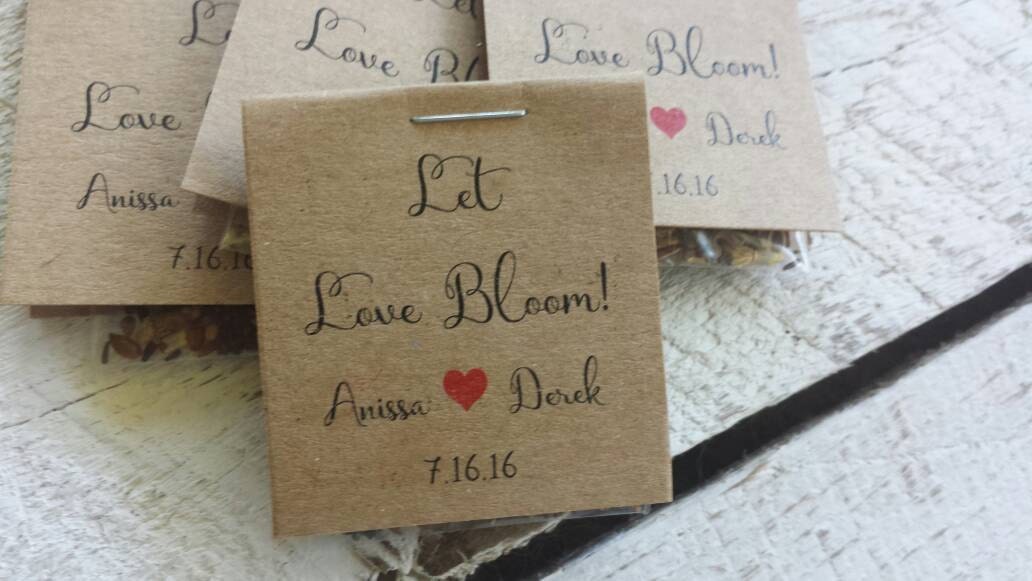 Love
Anissa
7.16.1
Let
Love Bl
Love Bloom!
Derek
.16.16
Let
Love Bloom!
Anissa Derek
7.16.16